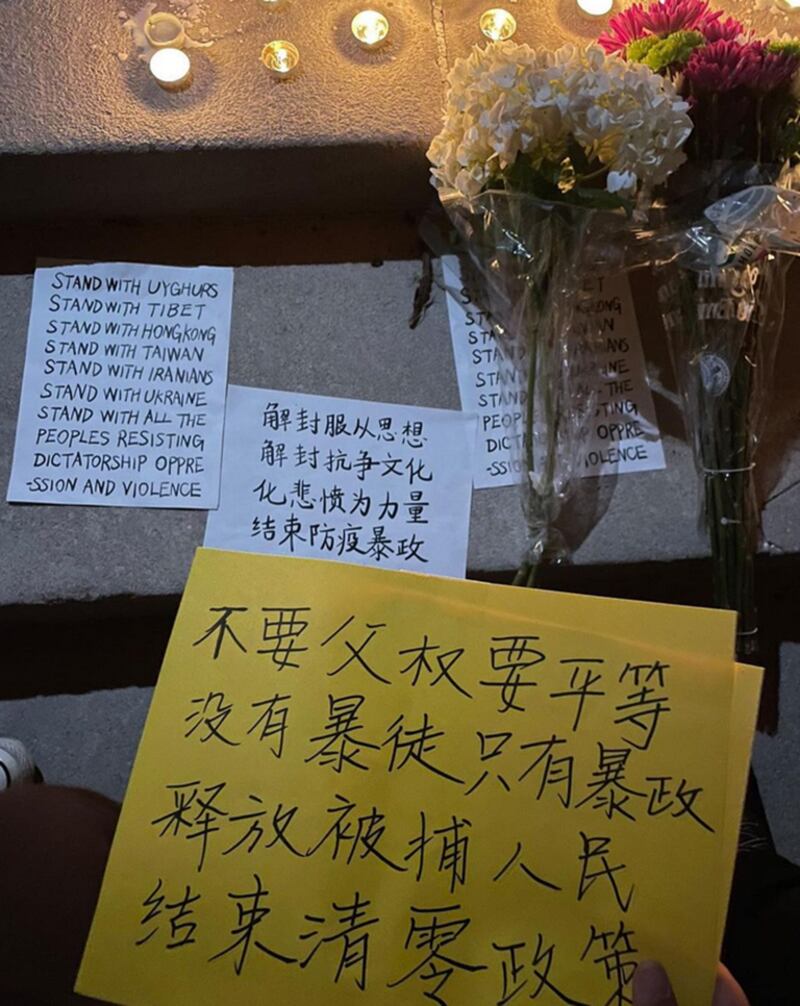 STAND WITH UYGHURS
STAND WITH TIBET
STAND WITH HONGKONG
STAND WITH TAIWAN
STAND WITH IRANIANS
STAND WITH UKRAINE
STAND WITH ALL THE
PEOPLES RESISTING
DICTATORSHIP OPPRE
-SSION AND VIOLENCE
解封服从思想
解封抗争文化
化悲愤为力量
结束防疫暴政
ALL THE
OPPRE
-SSION
VIOLENCE
不要父权要平等
没有暴徒只有暴政
释放被捕人民
结束清零政策